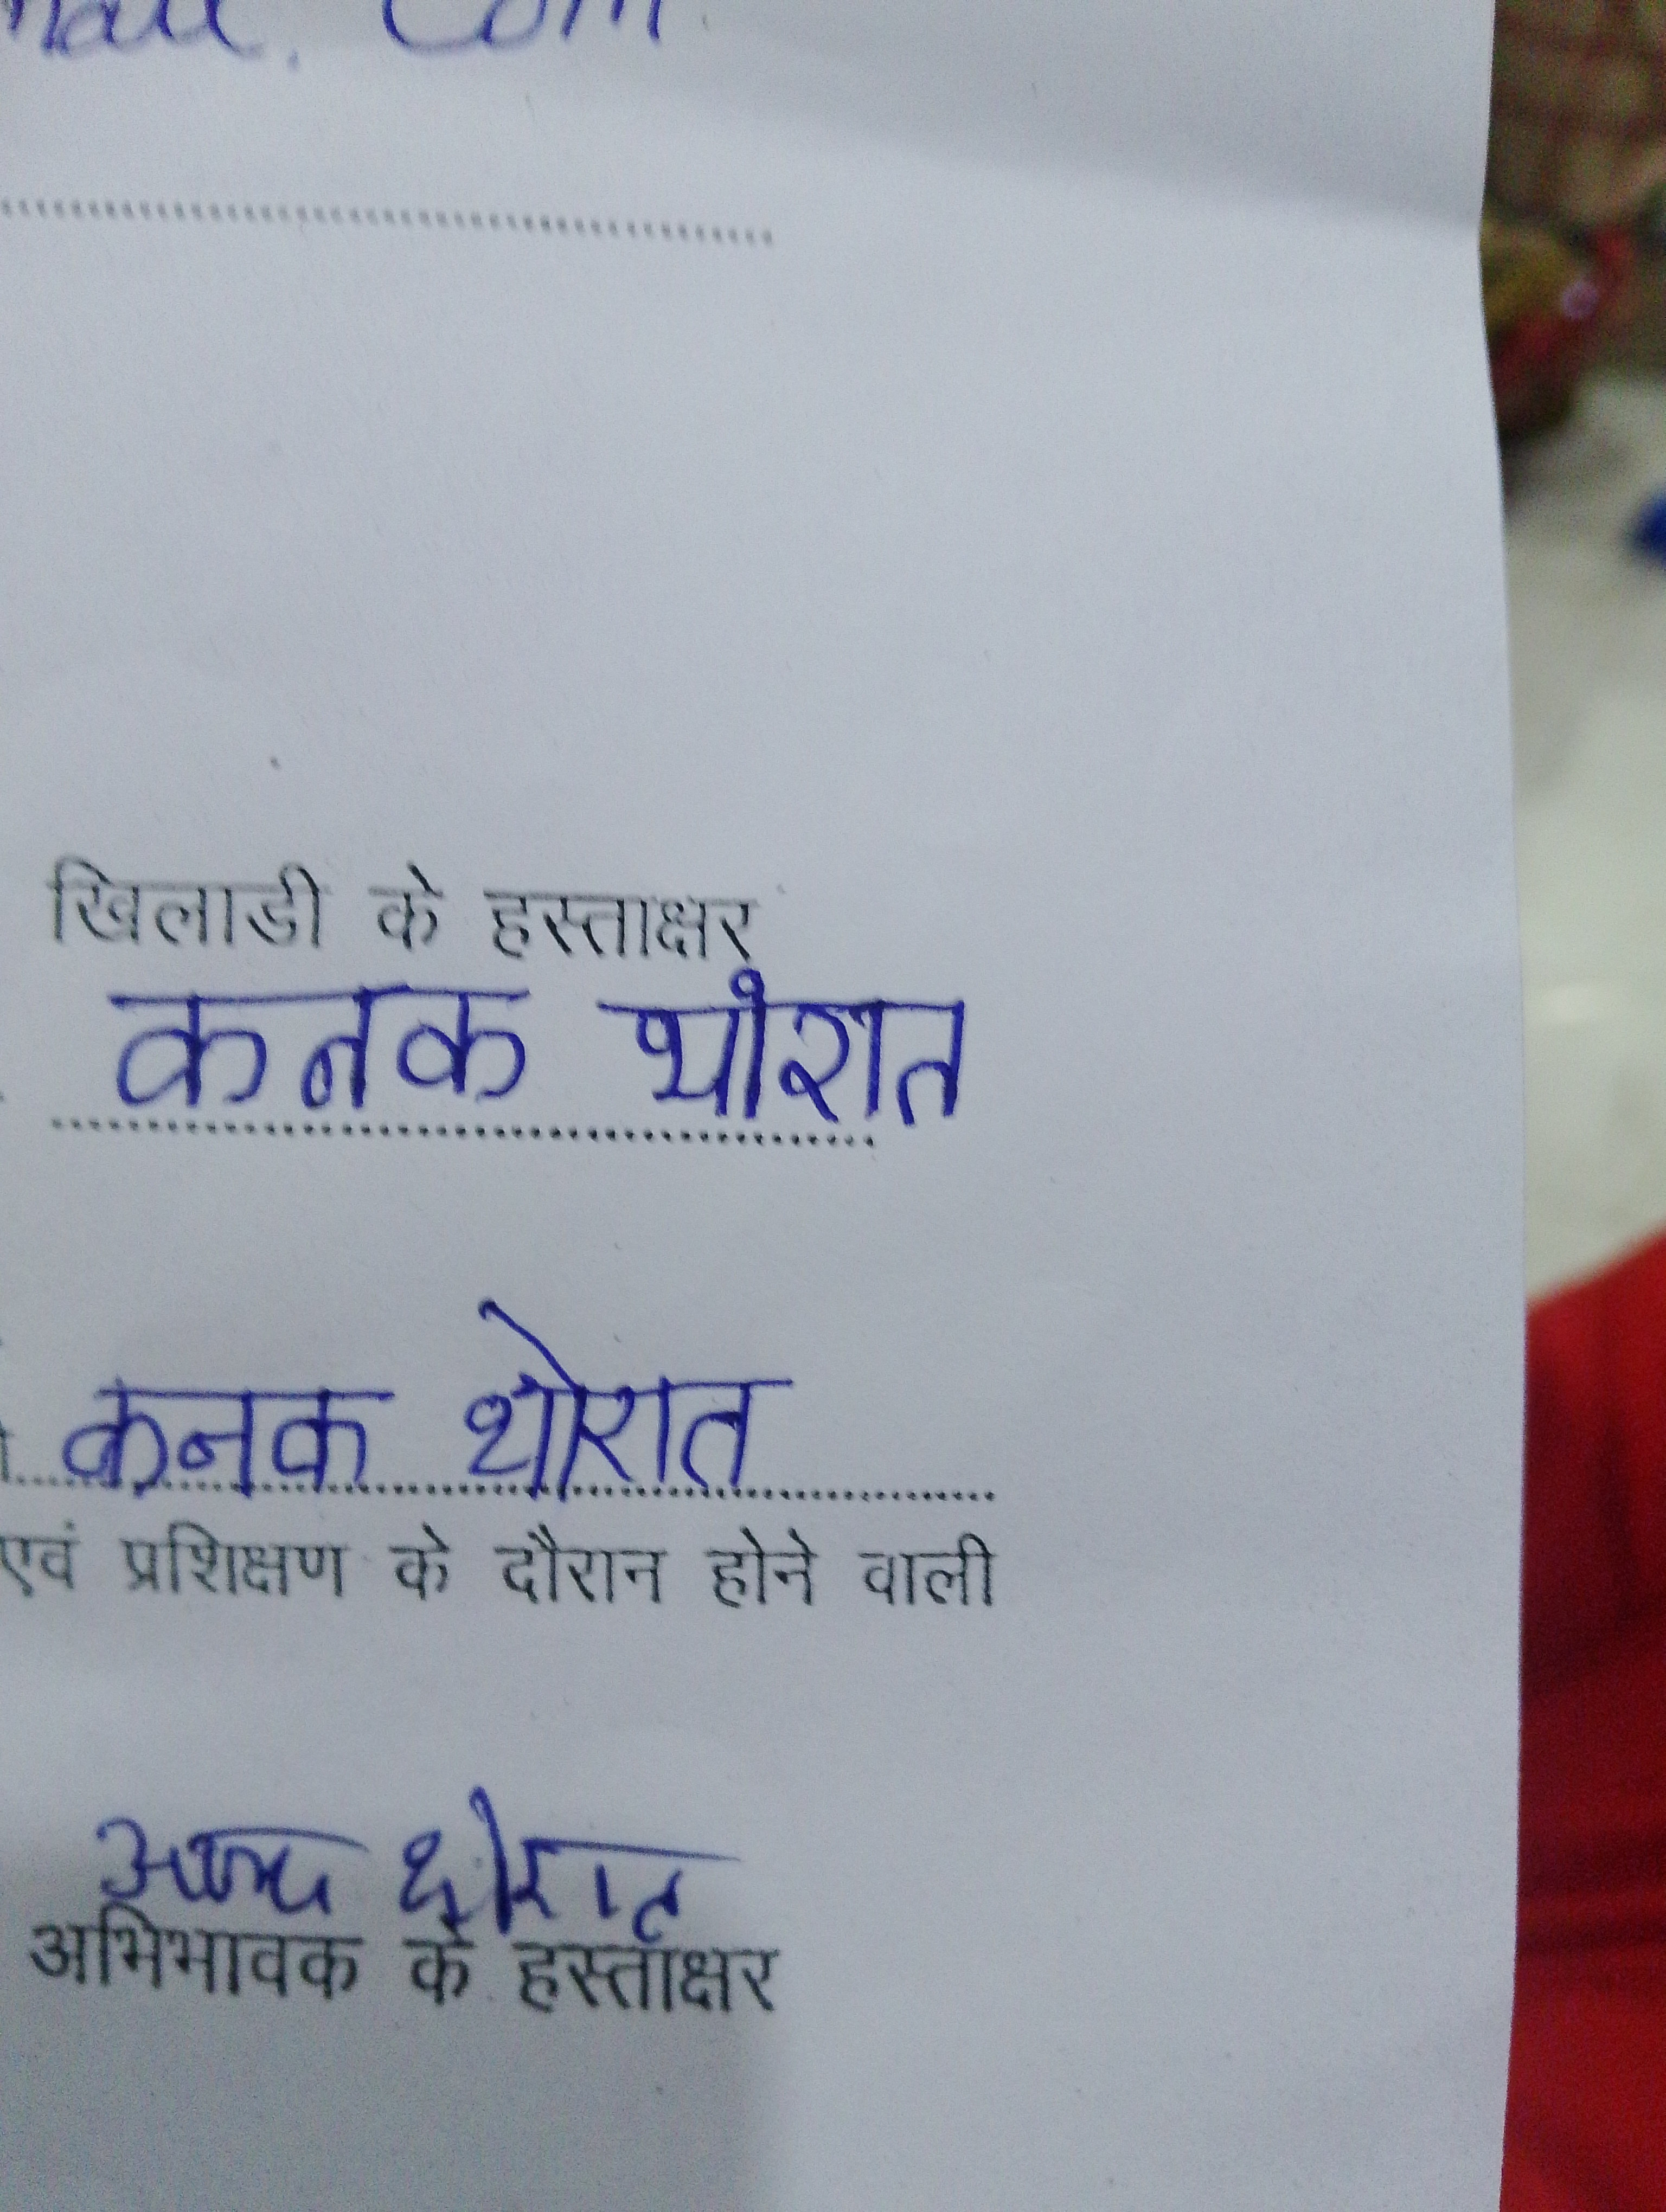 mail. com
खिलाडी के हस्ताक्षर
कनक थोरात
कनक थोरात
एवं प्रशिक्षण के दौरान होने वाली
थोरात
अभिभावक के हस्ताक्षर